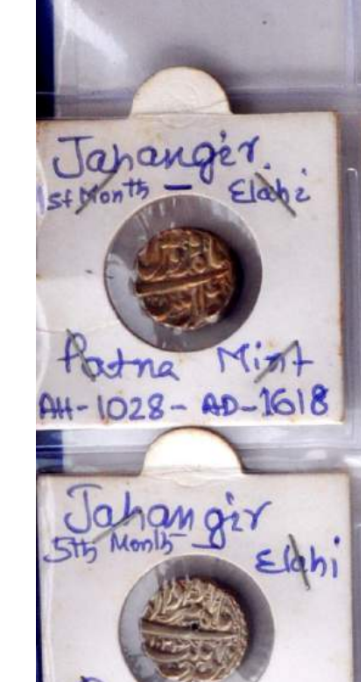 Jahangir.
1st Month - Elahi
Patna Mint
AH-1028- AD-1618
Jahangir
5th Month - Elahi